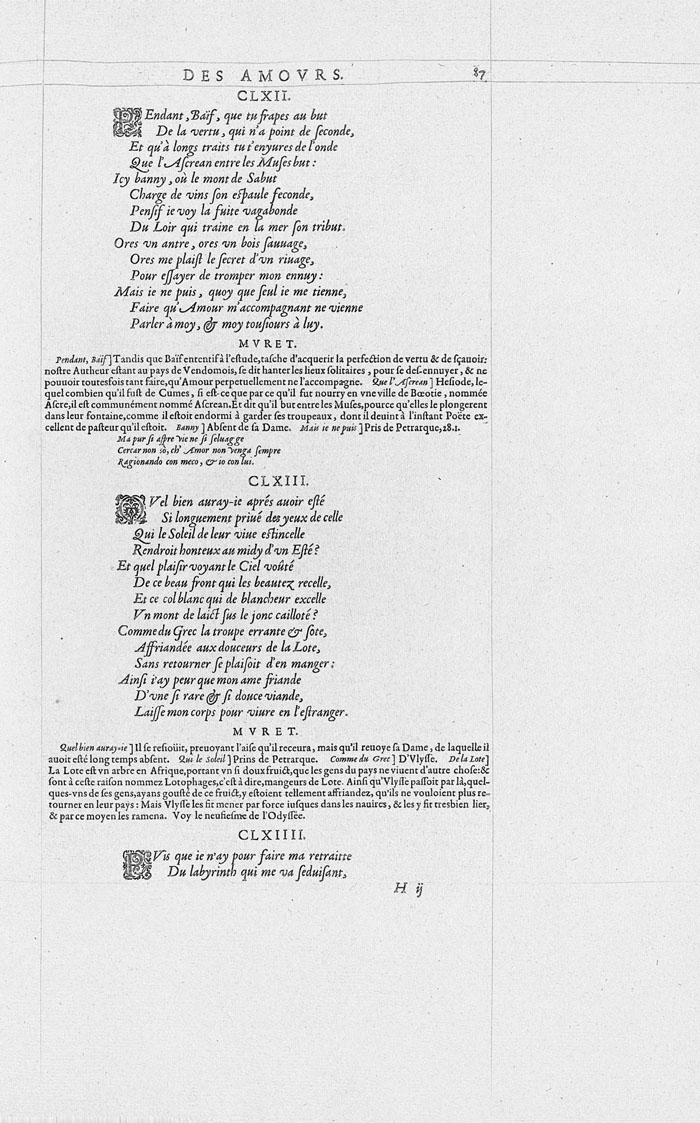 DES AMOVRS. 87
CLXII.
PEndant, Baïf, que tu frapes au but
De la vertu, qui n'a point de seconde,
Et qu'à longs traits tu t'enyures de l'onde
Que l'Ascrean entre les Muses but:
Icy banny, où le mont de Sabut
Charge de vins son espaule feconde,
Pensif ie voy la fuite vagabonde
Du Loir qui traine en la mer son tribut.
Ores vn antre, ores vn bois sauuage,
Ores me plaist le secret d'vn riuage,
Pour essayer de tromper mon ennuy:
Mais ie ne puis, quoy que seul ie me tienne,
Faire qu'Amour m'accompagnant ne vienne
Parler à moy, & moy tousiours à luy.
MVRET.
Pendant, Baïf] Tandis que Baïf ententif à l'estude, tasche d'acquerir la perfection de vertu & de sçauoir:
nostre Autheur estant au pays de Vendomois, se dit hanter les lieux solitaires, pour se des-ennuyer, & ne
pouuoir toutesfois tant faire, qu'Amour perpetuellement ne l'accompagne. Que l'Ascrean] Hesiode, le-
quel combien qu'il fust de Cumes, si est-ce que par ce qu'il fut nourry en vne ville de Bœotie, nommée
Ascre, il est communément nommé Ascrean. Et dit qu'il but entre les Muses, pource qu'elles le plongerent
dans leur fontaine, comme il estoit endormi à garder ses troupeaux, dont il deuint à l'instant Poëte ex-
cellent de pasteur qu'il estoit. Banny] Absent de sa Dame. Mais ie ne puis] Pris de Petrarque, 28.1.
Ma pur si aspre vie ne si seluagge
Cercar non so, ch' Amor non venga sempre
Ragionando con meco, & io con lui.
CLXIII.
QVel bien auray-ie aprés auoir esté
Si longuement priué des yeux de celle
Qui le Soleil de leur viue estincelle
Rendroit honteux au midy d'vn Esté?
Et quel plaisir voyant le Ciel voûté
De ce beau front qui les beautez recelle,
Et ce col blanc qui de blancheur excelle
Vn mont de laict sus le jonc cailloté?
Comme du Grec la troupe errante & sote,
Affriandée aux douceurs de la Lote,
Sans retourner se plaisoit d'en manger:
Ainsi i'ay peur que mon ame friande
D'vne si rare & si douce viande,
Laisse mon corps pour viure en l'estranger.
MVRET.
Quel bien auray-ie] Il se resioüit, preuoyant l'aise qu'il receura, mais qu'il reuoye sa Dame, de laquelle il
auoit esté long temps absent. Qui le Soleil] Prins de Petrarque. Comme du Grec] D'Vlysse. De la Lote]
La Lote est vn arbre en Afrique, portant vn si doux fruict, que les gens du pays ne viuent d'autre chose: &
sont à ceste raison nommez Lotophages, c'est à dire, mangeurs de Lote. Ainsi qu'Vlysse passoit par là, quel-
ques-vns de ses gens, ayans gousté de ce fruict, y estoient tellement affriandez, qu'ils ne vouloient plus re-
tourner en leur pays: Mais Vlysse les fit mener par force iusques dans les nauires, & les y fit tresbien lier,
& par ce moyen les ramena. Voy le neufiesme de l'Odyssée.
CLXIIII.
PVis que ie n'ay pour faire ma retraitte
Du labyrinth qui me va seduisant,
H ij